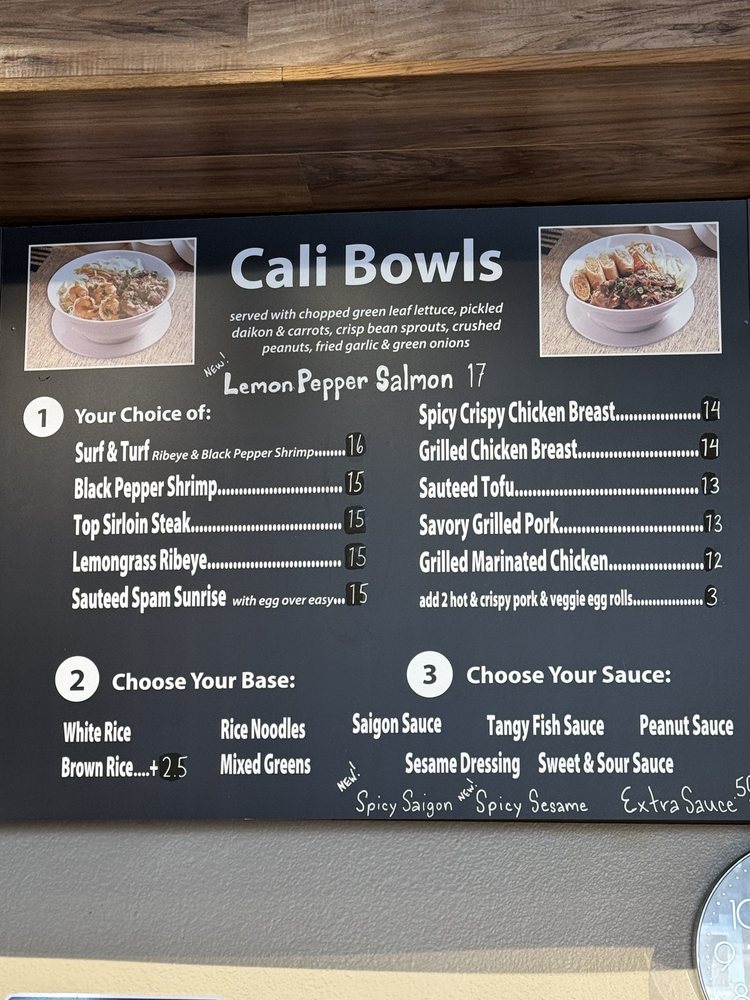 Cali Bowls
served with chopped green leaf lettuce, pickled
daikon & carrots, crisp bean sprouts, crushed
peanuts, fried garlic & green onions
NEW! Lemon Pepper Salmon 17
1 Your Choice of:
Surf & Turf Ribeye & Black Pepper Shrimp.......16
Black Pepper Shrimp..............................15
Top Sirloin Steak....................................15
Lemongrass Ribeye................................15
Sauteed Spam Sunrise with egg over easy...15
Spicy Crispy Chicken Breast...................14
Grilled Chicken Breast...........................14
Sauteed Tofu..........................................13
Savory Grilled Pork................................13
Grilled Marinated Chicken......................12
add 2 hot & crispy pork & veggie egg rolls.................3
2 Choose Your Base:
White Rice
Rice Noodles
Brown Rice....+2.5
Mixed Greens
3 Choose Your Sauce:
Saigon Sauce Tangy Fish Sauce Peanut Sauce
Sesame Dressing Sweet & Sour Sauce
NEW! Spicy Saigon NEW! Spicy Sesame Extra Sauce .50
10
9